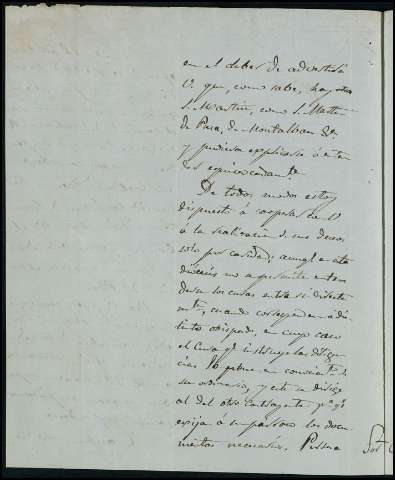 en el deber de advertirle
V. que, como sabe, hay otro
S. Martin, como S. Martin
de Pusa, de Montalban &c.
y pudiera explicarlo ó enten
der equivocadamte.
De todos modos estoy
dispuesto á cooperar con V.
á la realizacion de sus deseos
solo por caridad; aunq. en esta
diócesis no se permite enten
derse los curas entre sí directa
mte., cuando corresponden á dis
tinto obispado, en cuyo caso
el Cura q. instruye las diligen
cias lo pone en conocimto. de
su ordinario, y este se dirige
al del otro contrayente pa. q.
exija á su párroco los docu
mentos necesarios.
Sor.